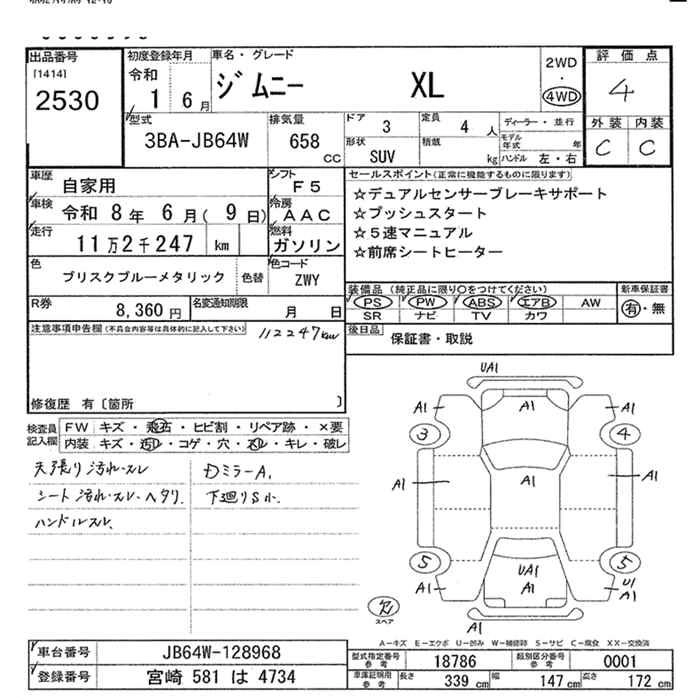 出品番号
[1414]
2530
初度登録年月
令和
1 6月
車名・グレード
ジムニー XL
2WD
・
4WD
評価点
4
外装 内装
C C
型式
3BA-JB64W
排気量
658
CC
ドア
3
定員
4 人
形状
SUV
積載
kg
ディーラー・並行
モデル
年式 年
ハンドル 左・右
車歴
自家用
シフト
F5
車検
令和 8年 6月( 9日)
冷房
AAC
走行
11万2千247 km
燃料
ガソリン
色
ブリスクブルーメタリック
色替
色コード
ZWY
セールスポイント(正常に機能するものに限ります)
☆デュアルセンサーブレーキサポート
☆プッシュスタート
☆5速マニュアル
☆前席シートヒーター
装備品(純正品に限り〇をつけてください)
新車保証書
PS PW ABS エアB AW
SR ナビ TV カワ
有・無
R券
8,360 円
名変通知期限
月 日
後日品
保証書・取説
注意事項申告欄(不具合内容等は具体的に記入して下さい)
112247km
修復歴 有〔箇所 〕
検査員
記入欄
FW キズ・飛石・ヒビ割・リペア跡・×要
内装 キズ・汚れ・コゲ・穴・スレ・キレ・破レ
天張り汚れ・スレ
シート汚れ・スレ・ヘタリ.
ハンドルスレ.
DミラーA.
下廻りS小.
UA1
A1 A1 A1
3 4
A1 A1 A1
5 5
UA1
A1 A1
U1
A1
A1
スペア
A-キズ E-エクボ U-凹み W-補修跡 S-サビ C-腐食 XX-交換済
車台番号
JB64W-128968
登録番号
宮崎 581 は 4734
型式指定番号
参考
18786
類別区分番号
参考
0001
車庫証明用
参考
長さ
339 cm
幅
147 cm
高さ
172 cm